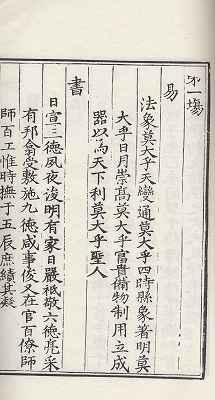 苐一場
易
法象莫大乎天變通莫大乎四時縣象著明莫
大乎日月崇高莫大乎富貴備物制用立成
器以為天下利莫大乎聖人
書
日宣三德夙夜浚明有家日嚴祗敬六德亮采
有邦翕受敷施九德咸事俊乂在官百僚師
師百工惟時撫于五辰庶績其凝